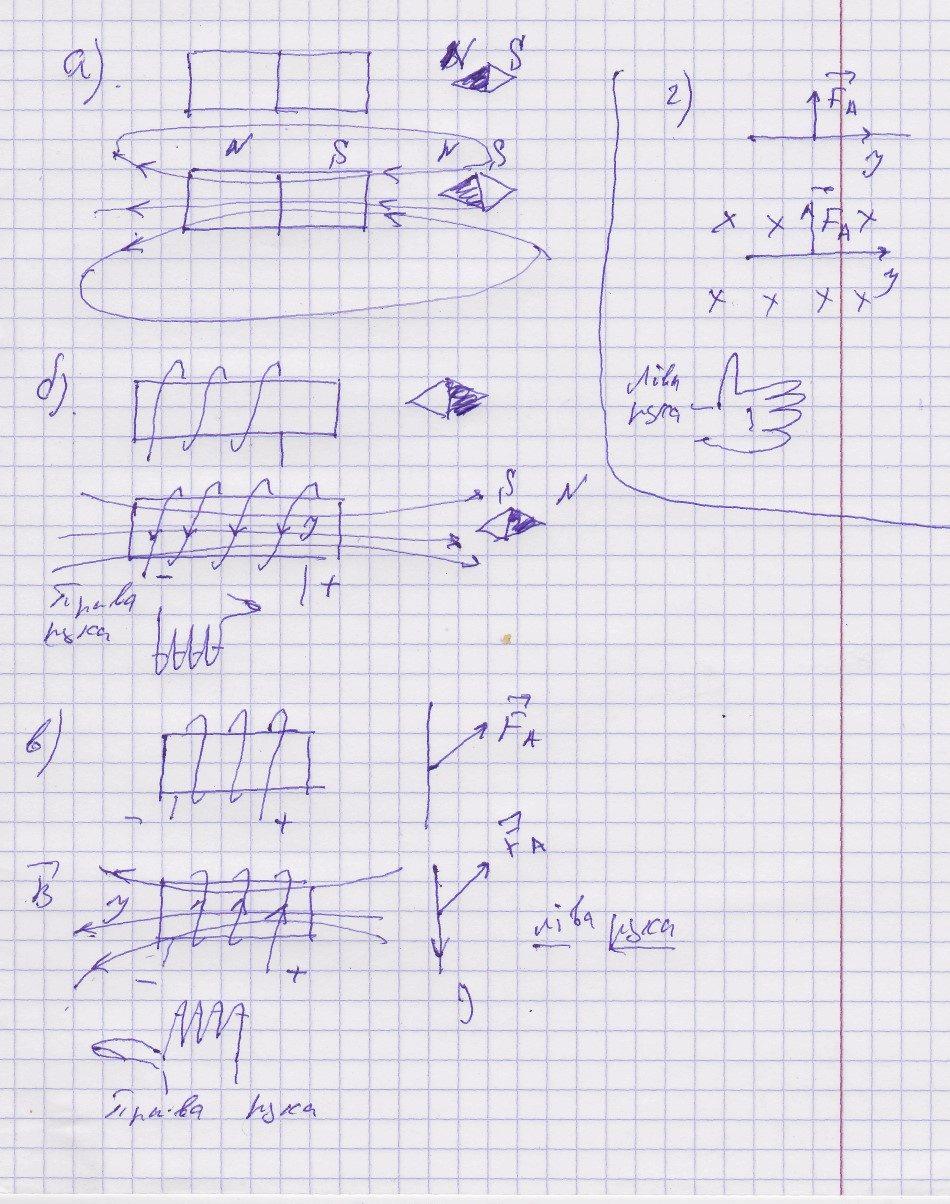 а).
N S
N S N S
б).
S N
I
- +
Права
рука
в)
F⃗A
- +
F⃗A
B⃗
I
- +
ліва рука
I
Права рука
г)
F⃗A
I
x x F⃗A x
I
x x x x
Ліва
рука